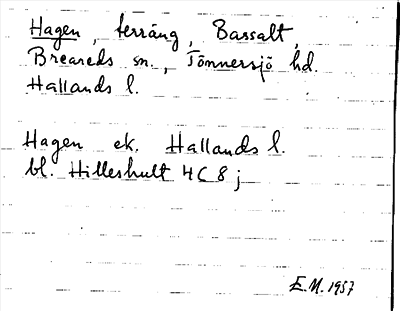 Hagen, terräng, Bassalt,
Breareds sn., Tönnersjö hd.
Hallands l.
Hagen ek. Hallands l.
bl. Hilleshult 4C8j
E.M. 1957